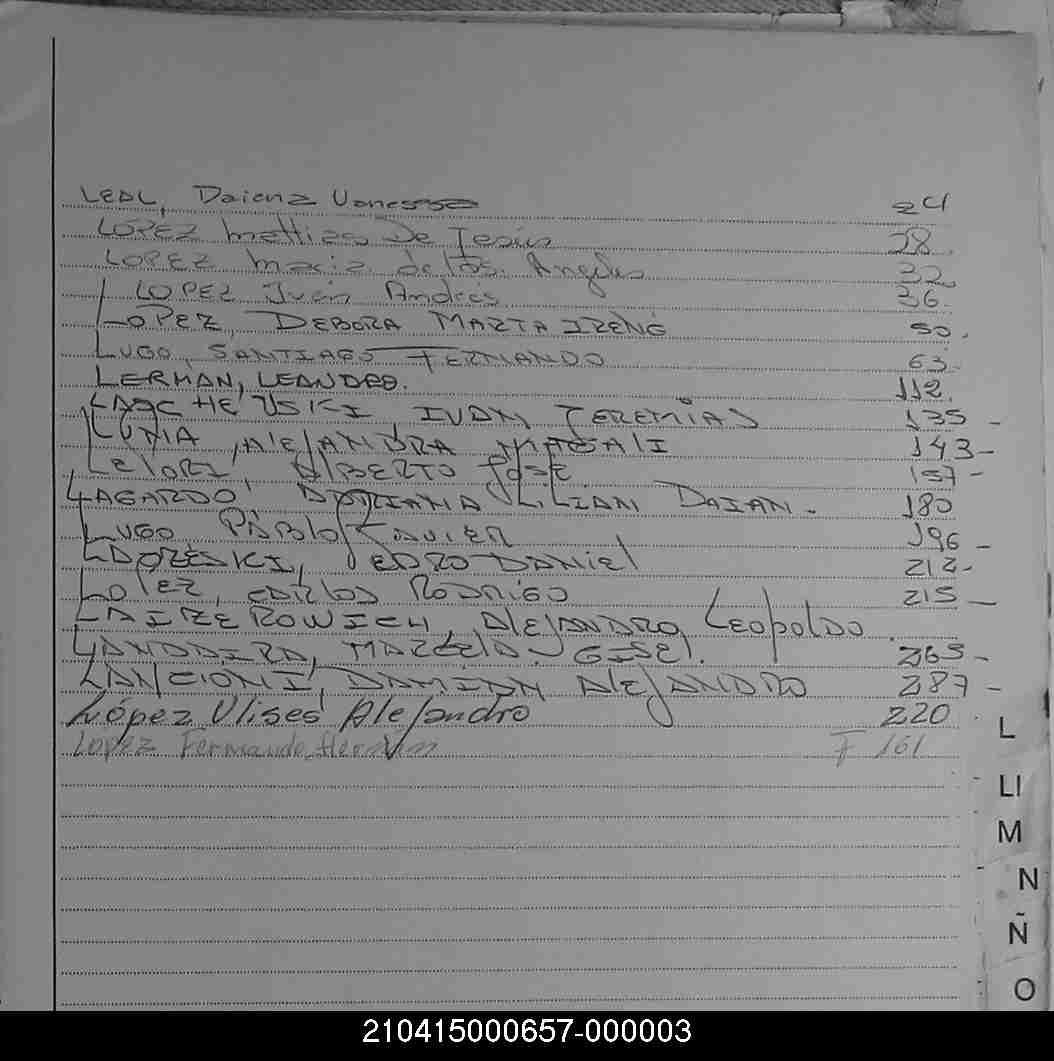 LEAL, Daiana Vanessa 24
LOPEZ Mattias De Jesús 28
LOPEZ Maria de los Angeles 32
LOPEZ Juan Andrés 36
LOPEZ, DEBORA MARTA IRENE 50
LUGO, SANTIAGO FERNANDO 63
LERMAN, LEANDRO. 112
IVAN JEREMIAS 135
ALEJANDRA MAGALI 143
ALBERTO José 157
LAGARDO, ADRIANA LILIAN DAIAN. 180
LUGO PABLO JAVIER 196
PEDRO DANIEL 212
LOPEZ, CARLOS RODRIGO 215
ALEJANDRO, Leopoldo
MARCELA GISEL. 265
LANCIONI, DAMIAN ALEJANDRO 287
López Ulises Alejandro 220
Lopez Fernando Hernán F 161
L
Ll
M
N
Ñ
O
210415000657-000003